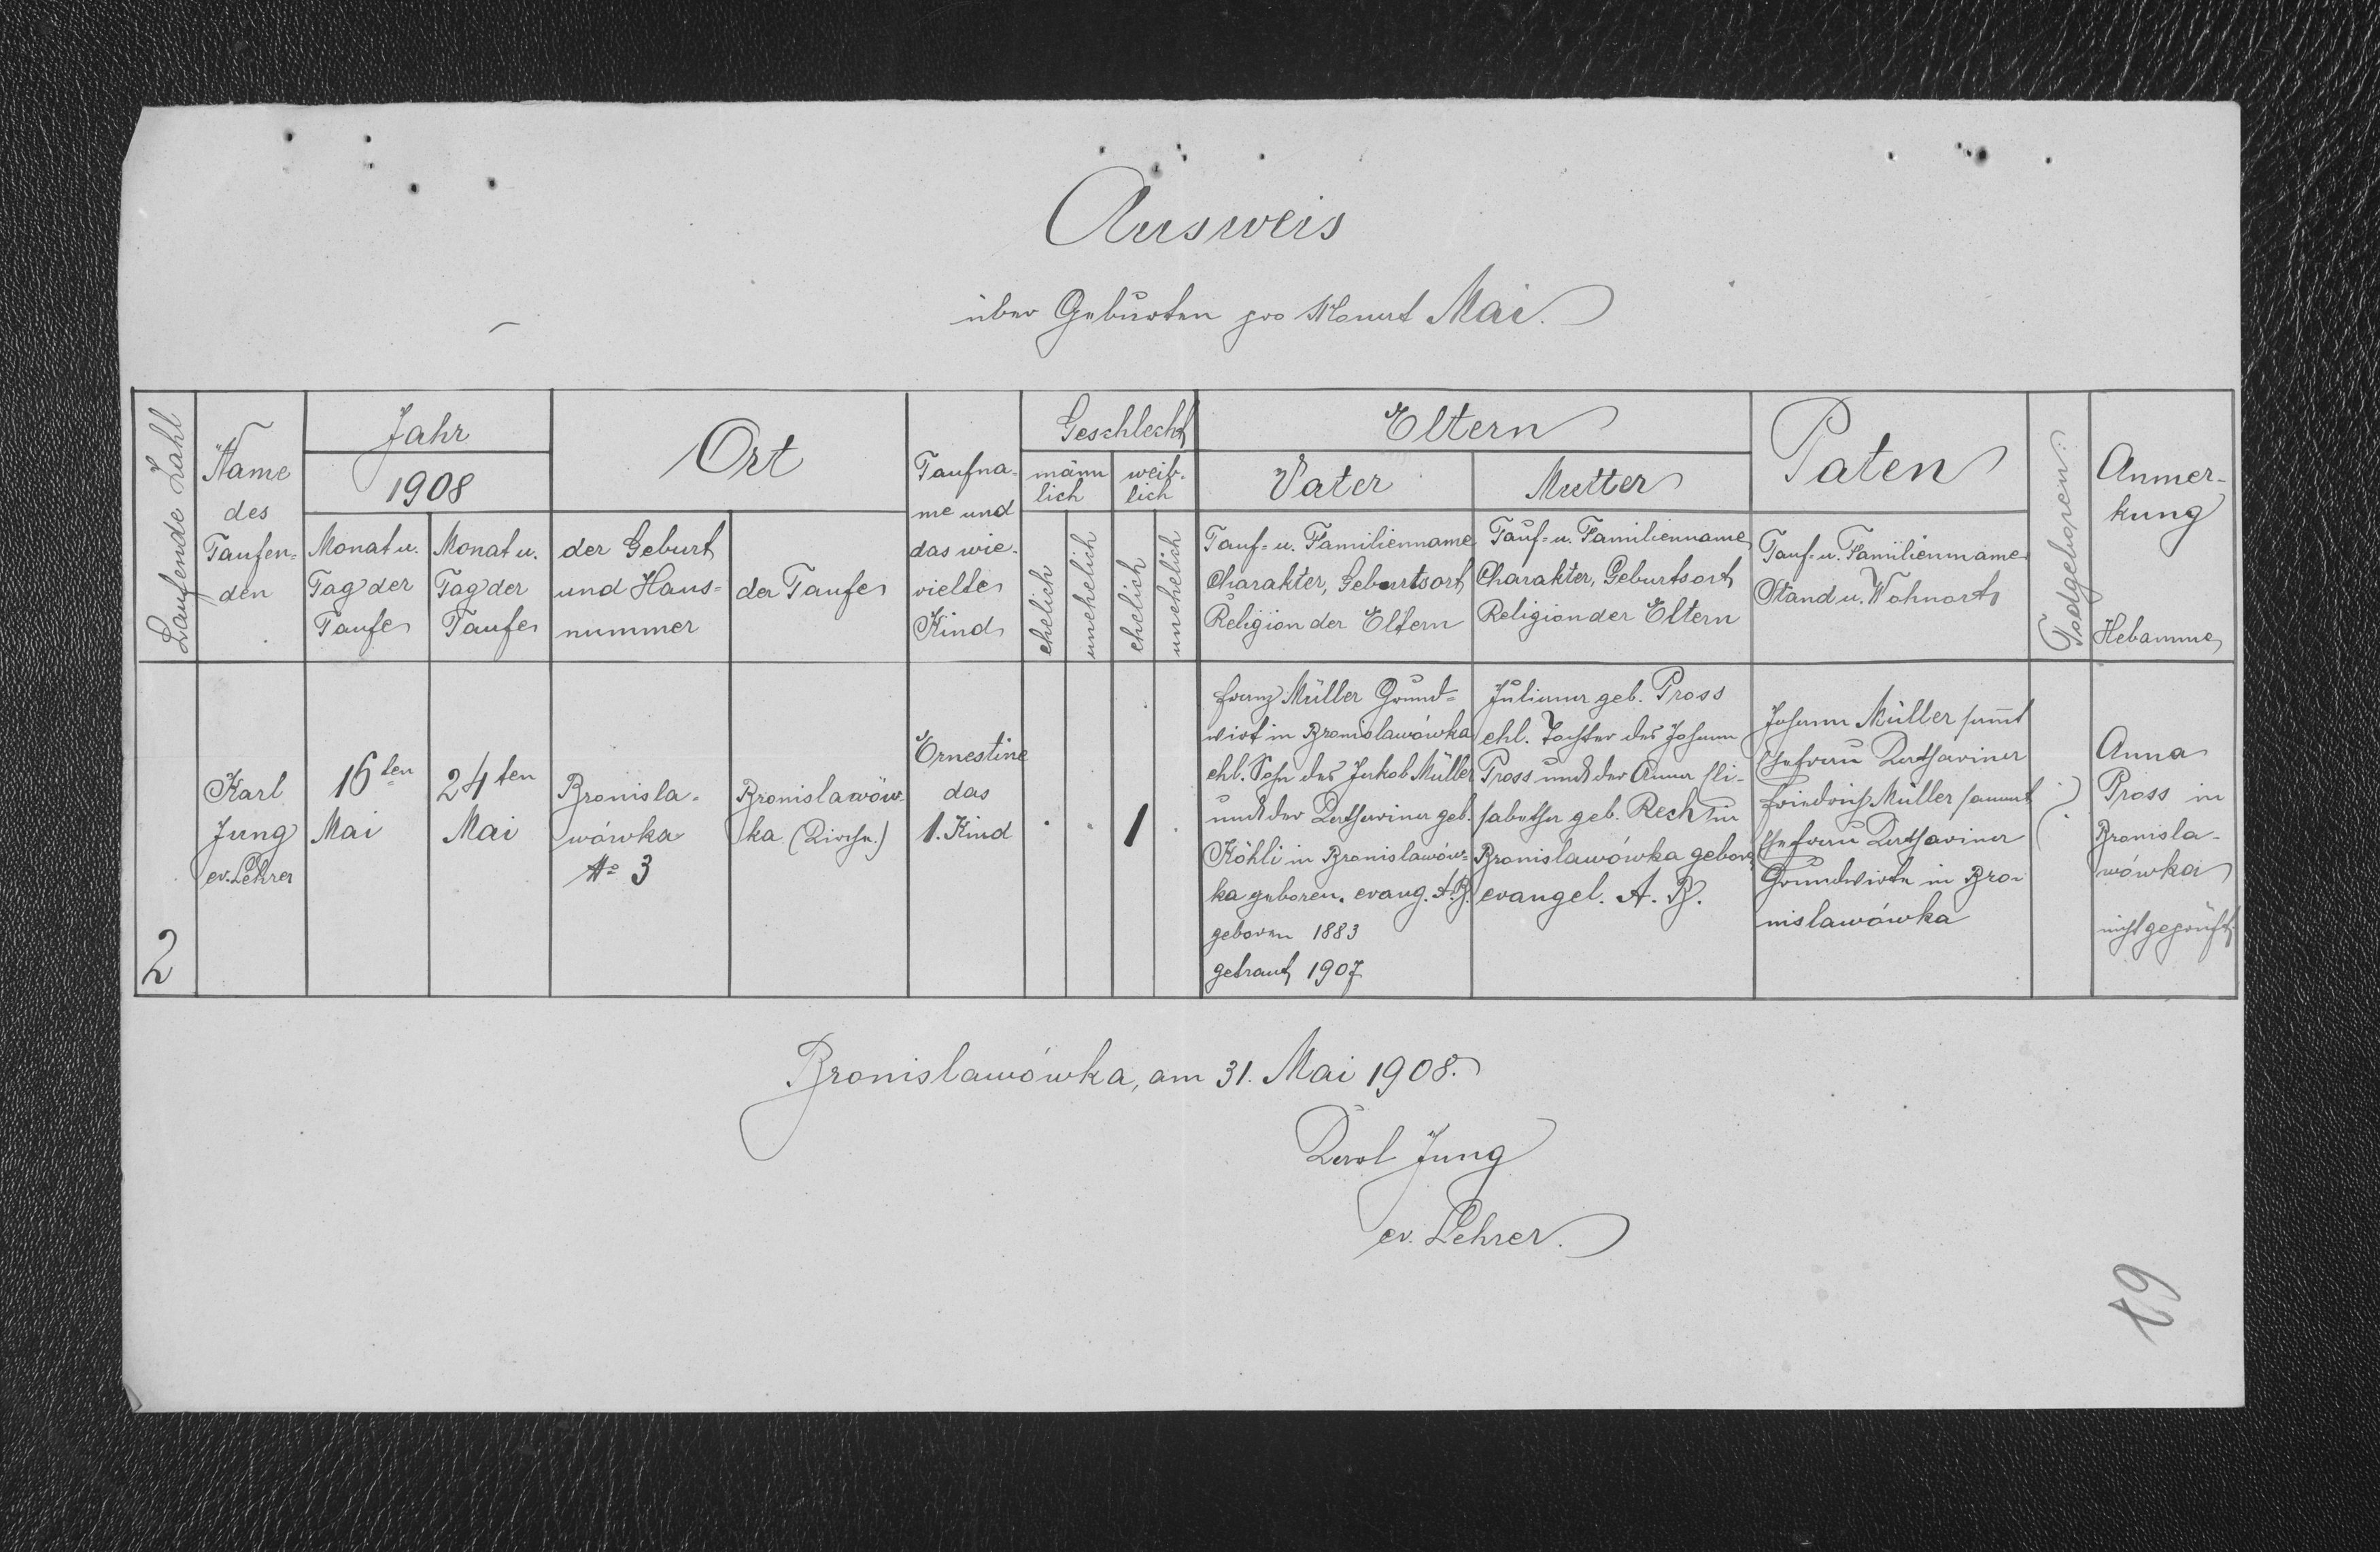 Ausweis
über Geburten pro Monat Mai.
Laufende Zahl
Name
des
Taufen-
den
Jahr
1908
Monat u.
Tag der
Taufe
Monat u.
Tag der
Taufe
Ort
der Geburt
und Haus-
nummer
der Taufe
Taufna-
me und
das wie-
vielte
Kind
Geschlecht
männ
lich
weib-
lich
ehelich
unehelich
ehelich
unehelich
Eltern
Vater
Mutter
Tauf- u. Familienname
Charakter, Geburtsort
Religion der Eltern
Tauf- u. Familienname
Charakter, Geburtsort
Religion der Eltern
Paten
Tauf- u. Familienname
Stand u. Wohnort
Todgeboren
Anmer-
kung
Hebamme
2
Karl
Jung
ev. Lehrer
16ten
Mai
24ten
Mai
Bronisla-
wówka
No 3
Bronislawów-
ka (Kirche.)
Ernestine
das
1. Kind
1
Franz Müller Grund-
wirt in Bronislawówka
ehl. Sohn des Jakob Müller
und der Katharina geb.
Köhli in Bronislawów-
ka geboren. evang. A. B.
geboren 1883
getraut 1907
Juliana geb. Pross
ehl. Tochter des Johann
Pross und der Anna Eli-
sabetha geb. Rech in
Bronislawówka geboren
evangel. A. B.
Johann Müller samt
Ehefrau Katharina
Friedrich Müller sammt
Ehefrau Katharina
Grundwirte in Bro-
nislawówka
Anna
Pross in
Bronisla-
wówka
nicht geprüft
Bronislawówka, am 31. Mai 1908.
Karl Jung
ev. Lehrer.